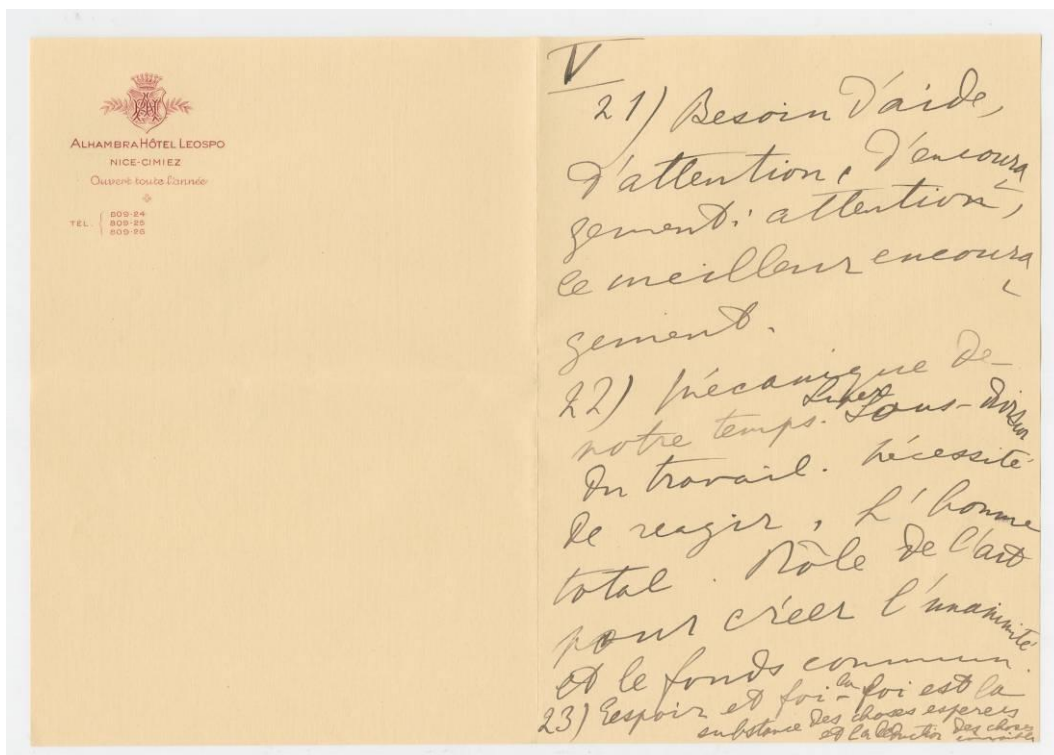 ALHAMBRA HÔTEL LEOSPO
NICE-CIMIEZ
Ouvert toute l'année
TÉL.
809-24
809-25
809-26
V
21) Besoin d'aide,
d'attention, d'encoura
gement: attention,
le meilleur encoura
gement.
22) Mécanique de
notre temps. Super
Sous-division
du travail. Nécessité
de reagir, L'homme
total. Rôle de l'art
pour créer l'unanimité
et le fonds commun.
23) Espoir et foi - la foi est la
substance des choses esperees
et la des choses